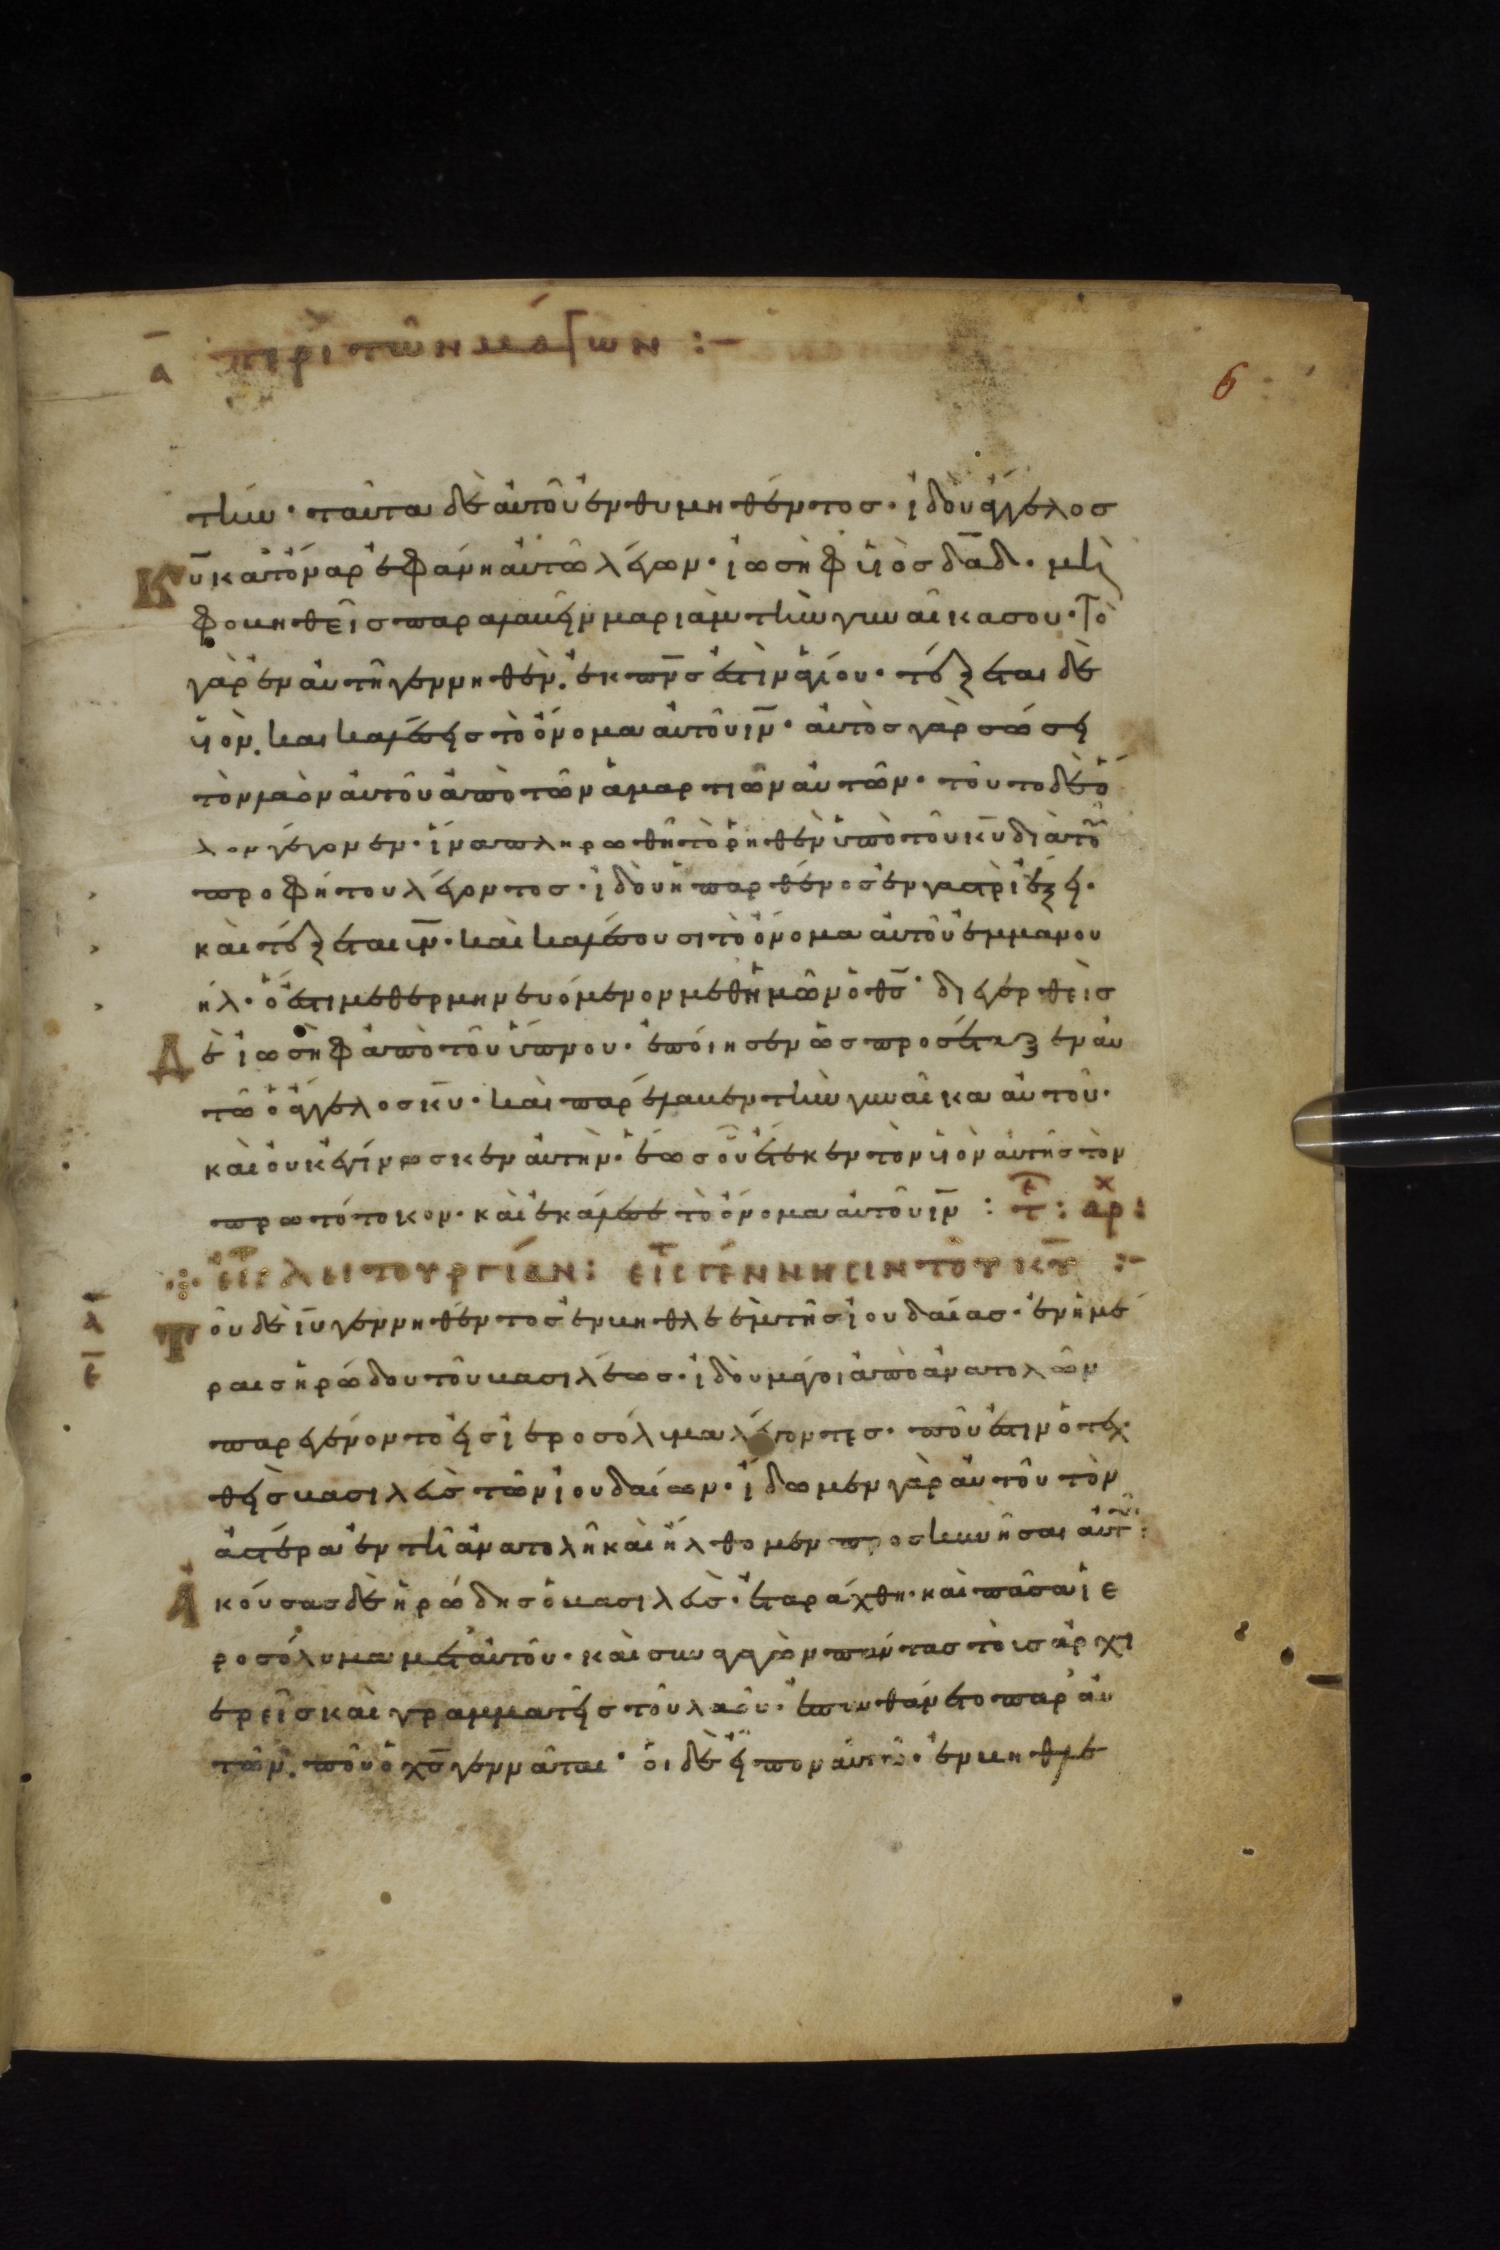 α̅ περὶ τῶν μάγων :-
6
τήν· ταῦτα δὲ αὐτοῦ ἐνθυμηθέντος· ἰδοὺ ἄγγελος
κ̅υ̅ κατ' ὄναρ ἐφάνη αὐτῶ λέγων· ἰωσὴφ υἱὸς δ̅α̅δ̅· μὴ
φοβηθεῖς παραλαβεῖν μαριὰμ τὴν γυναῖκα σου· τὸ
γὰρ ἐν αὐτῆ γεννηθὲν. ἐκ π̅ν̅ς ἐστὶν ἁγίου· τέξεται δὲ
υἱὸν. καὶ καλέσεις τὸ ὄνομα αὐτοῦ ι̅ν̅· αὐτὸς γὰρ σώσει
τὸν λαὸν αὐτοῦ ἀπὸ τῶν ἁμαρτιῶν αὐτῶν· τοῦτο δὲ ὅ
λον γέγονεν· ἵνα πληρωθῆ τὸ ῥηθὲν ὑπὸ τοῦ κ̅υ̅ διὰ τοῦ
προφήτου λέγοντος· ἰδοὺ ἡ παρθένος ἐν γαστρὶ ἕξει·
καὶ τέξεται υ̅ν̅· καὶ καλέσουσι τὸ ὄνομα αὐτοῦ ἐμμανου
ήλ· ὅ ἐστι μεθερμηνευόμενον μεθ' ἡμῶν ὁ θ̅ς̅· διεγερθεὶς
δὲ ἰωσὴφ ἀπὸ τοῦ ὕπνου· ἐποίησεν ὡς προσέταξεν αὐ
τῶ ὁ ἄγγελος κ̅υ̅· καὶ παρέλαβεν τὴν γυναῖκα αὐτοῦ·
καὶ οὐκ ἐγίνωσκεν αὐτὴν· ἕως οὗ ἔτεκεν τὸν υἱὸν αὐτῆς τὸν
πρωτότοκον· καὶ ἐκάλεσε τὸ ὄνομα αὐτοῦ ι̅ν̅ : τε : αρχ :
εἰς λειτουργίαν: εἰς τ γέννησιν τοῦ κ̅υ̅ :-
α̅ Τοῦ δὲ ι̅υ̅ γεννηθέντος ἐν βηθλεὲμ τῆς ἰουδαίας· ἐν ἡμέ
ε̅ ραις ἡρώδου τοῦ βασιλέως· ἰδοὺ μάγοι ἀπὸ ἀνατολῶν
παρεγένοντο εἰς ἱεροσόλυμα λέγοντες· ποῦ ἐστὶν ὁ τεχ
θεὶς βασιλεὺς τῶν ἰουδαίων· ἴδωμεν γὰρ αὐτοῦ τὸν
ἀστέρα ἐν τῆ ἀνατολῆ καὶ ἤλθομεν προσκυνῆσαι αὐτῶ:
Ἀκούσας δὲ ἡρώδης ὁ βασιλεὺς· ἐταράχθη· καὶ πᾶσα ἱε
ροσόλυμα μετ' αὐτοῦ· καὶ συναγαγὼν πάντας τοὺς ἀρχι
ερεῖς καὶ γραμματεῖς τοῦ λαοῦ· ἐπυνθάνετο παρ' αὐ
τῶν. ποῦ ὁ χ̅ς̅ γεννᾶται· οἱ δὲ εἶπον αὐτῶ· ἐν βηθλε